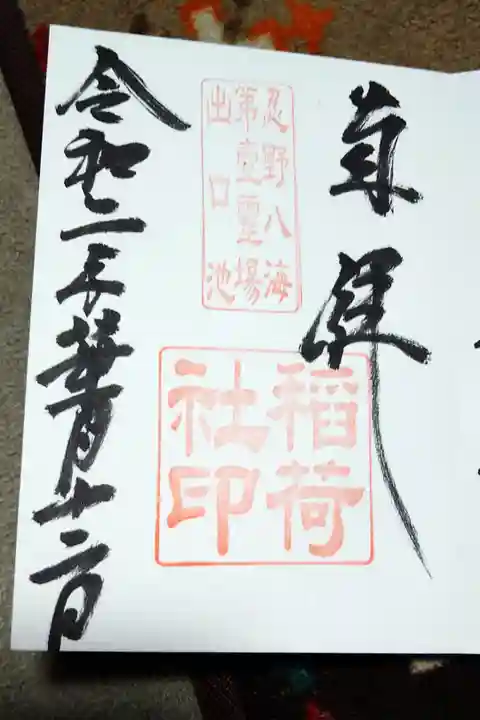 奉拝
忍野八海
第壱霊場
出口池
稲荷
社印
令和二年葉月十二日